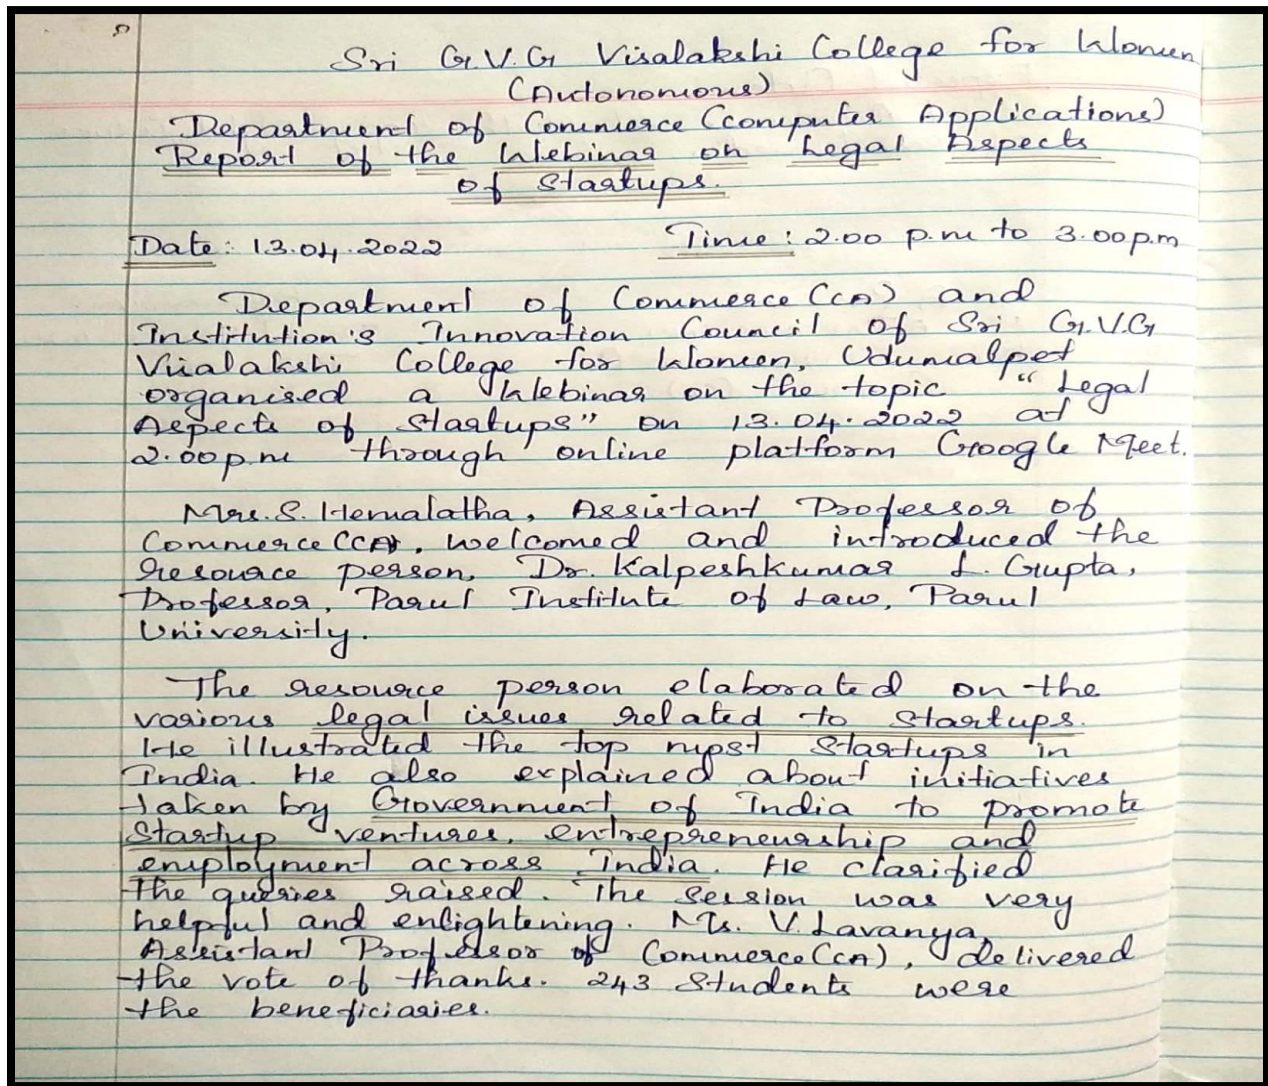 Sri G.V.G Visalakshi College for Women
(Autonomous)
Department of Commerce (Computer Applications)
Report of the Webinar on Legal Aspects
of Startups.
Date: 13.04.2022 Time: 2.00 p.m to 3.00p.m
Department of Commerce (CA) and
Institution's Innovation Council of Sri G.V.G
Visalakshi College for Women, Udumalpet
organised a Webinar on the topic "Legal
Aspects of Startups" on 13.04.2022 at
2.00p.m through online platform Google Meet.
Mrs. S. Hemalatha, Assistant Professor of
Commerce (CA), welcomed and introduced the
resource person, Dr. Kalpeshkumar L. Gupta,
Professor, Parul Institute of Law, Parul
University.
The resource person elaborated on the
various legal issues related to startups.
He illustrated the top most startups in
India. He also explained about initiatives
taken by Government of India to promote
Startup ventures, entrepreneurship and
employment across India. He clarified
the queries raised. The session was very
helpful and enlightening. Ms. V. Lavanya,
Assistant Professor of Commerce (CA), delivered
the vote of thanks. 243 Students were
the beneficiaries.